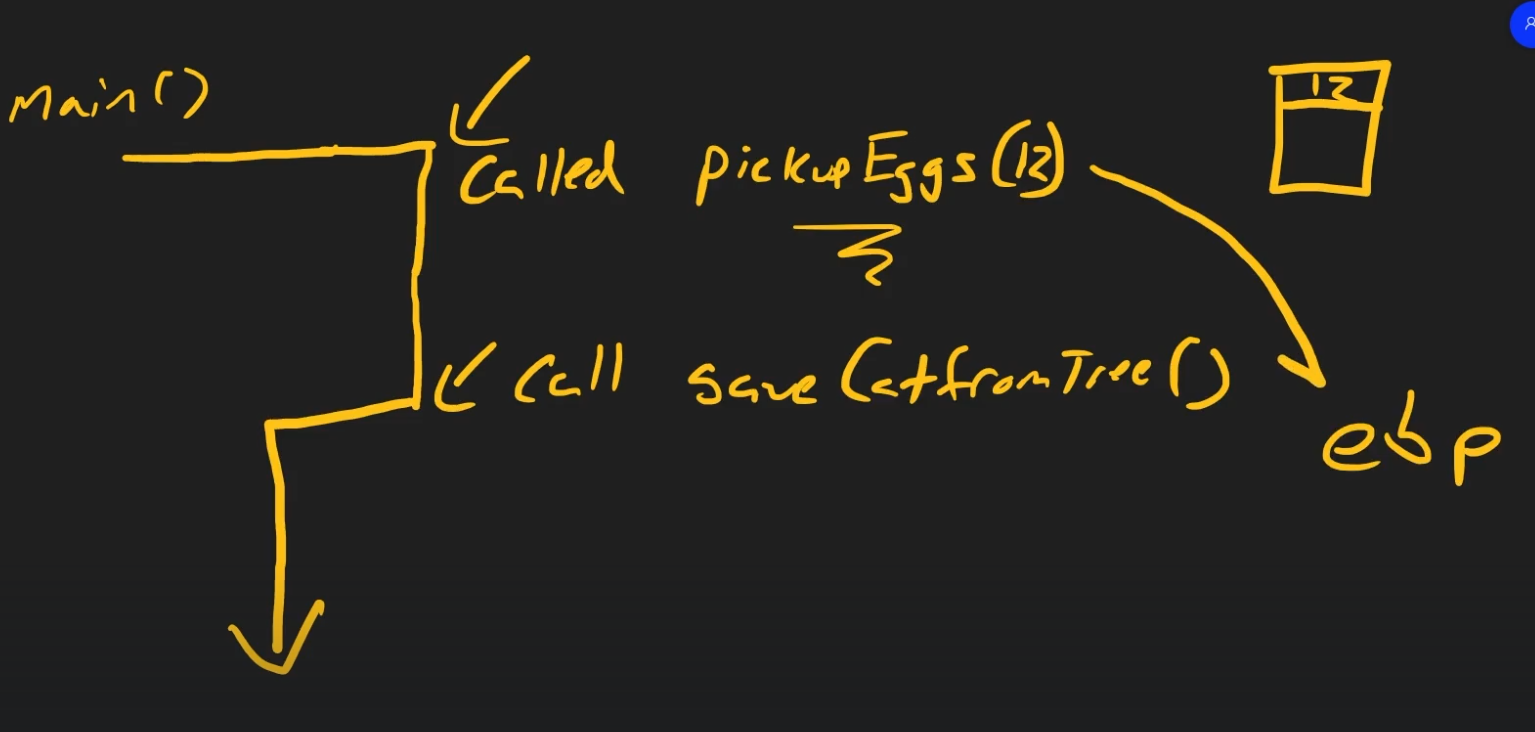 Main()
12
Called pickupEggs(12)
Call saveCatfromTree()
ebp